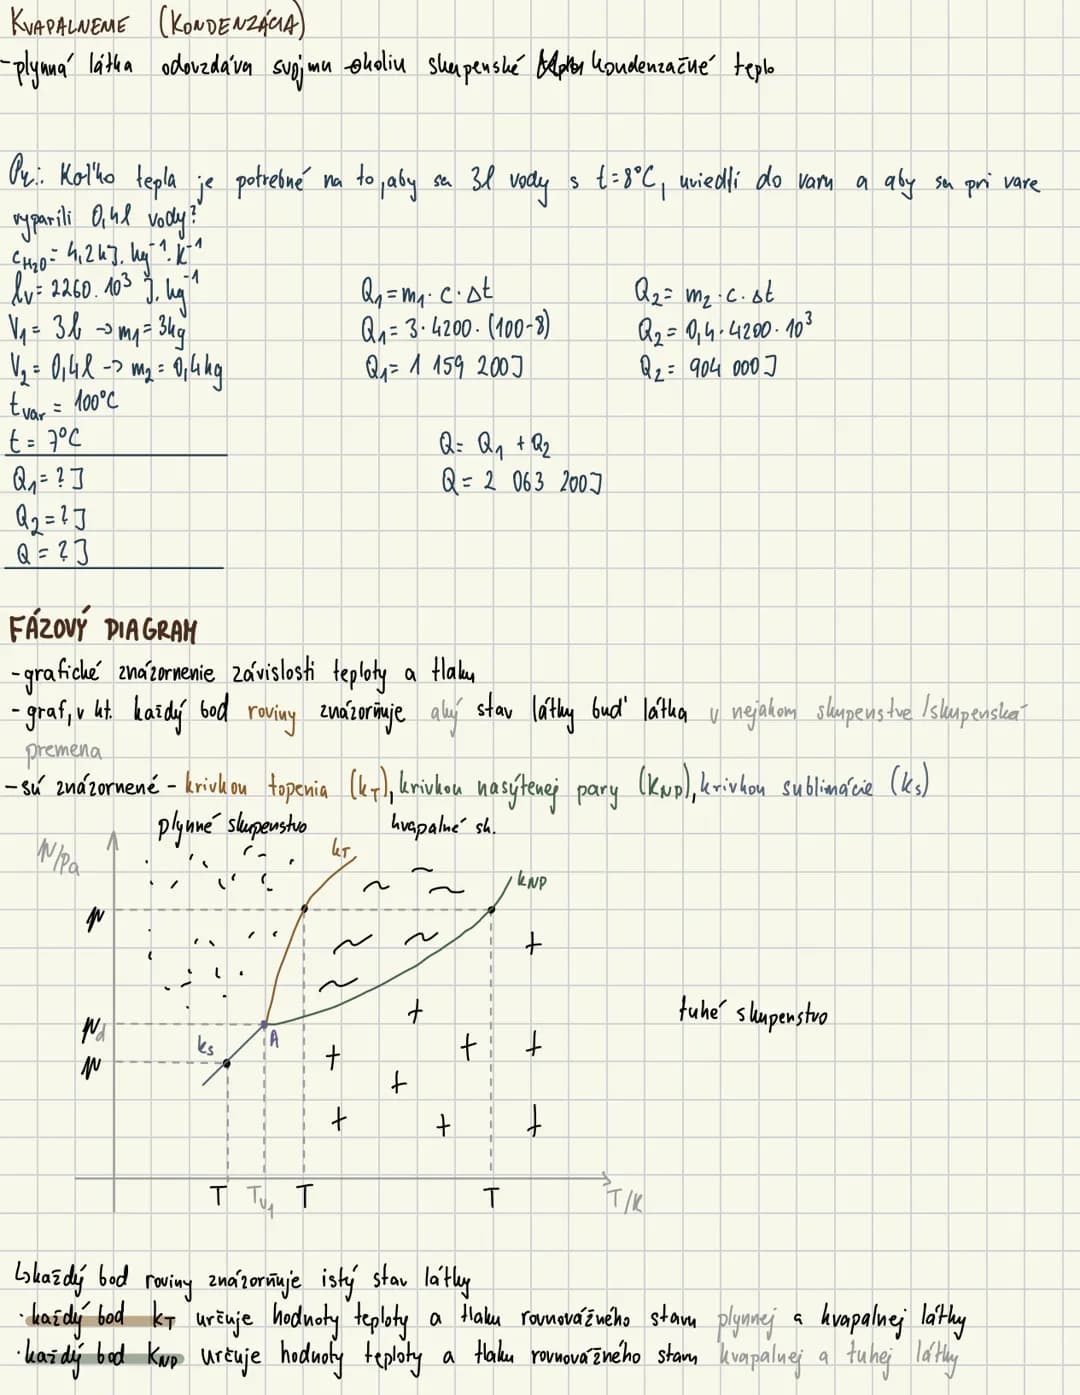 KVAPALNEME (KONDENZÁCIA)
-plynná látka odovzdáva svojmu okoliu skupenské kondenzačné teplo
Pr.: Koľko tepla je potrebné na to, aby sa 3l vody s t=8°C, uviedli do varu a aby sa pri vare
vyparili 0,4l vody?
c_H2O = 4,2kJ.kg⁻¹.K⁻¹
l_v = 2260.10³ J.kg⁻¹
V₁ = 3l -> m₁ = 3kg
V₂ = 0,4l -> m₂ = 0,4kg
t_var = 100°C
t = 7°C
Q₁ = ? J
Q₂ = ? J
Q = ? J
Q₁ = m₁.c.Δt
Q₁ = 3.4200.(100-8)
Q₁ = 1 159 200J
Q₂ = m₂.c.Δt
Q₂ = 0,4.4200.10³
Q₂ = 904 000J
Q = Q₁ + Q₂
Q = 2 063 200J
FÁZOVÝ DIAGRAM
-grafické znázornenie závislosti teploty a tlaku
-graf, v kt. každý bod roviny znázorňuje aký stav látky buď látka v nejakom skupenstve /skupenská
premena
-sú znázornené - krivkou topenia (k_T), krivkou nasýtenej pary (k_NP), krivkou sublimácie (k_s)
plynné skupenstvo kvapalné sk.
p/Pa
k_T
k_NP
p
p_d
A
k_s
p
tuhé skupenstvo
T T_v1 T T T/K
↳každý bod roviny znázorňuje istý stav látky
·každý bod k_T určuje hodnoty teploty a tlaku rovnovážneho stavu plynnej a kvapalnej látky
·každý bod k_NP určuje hodnoty teploty a tlaku rovnovážneho stavu kvapalnej a tuhej látky